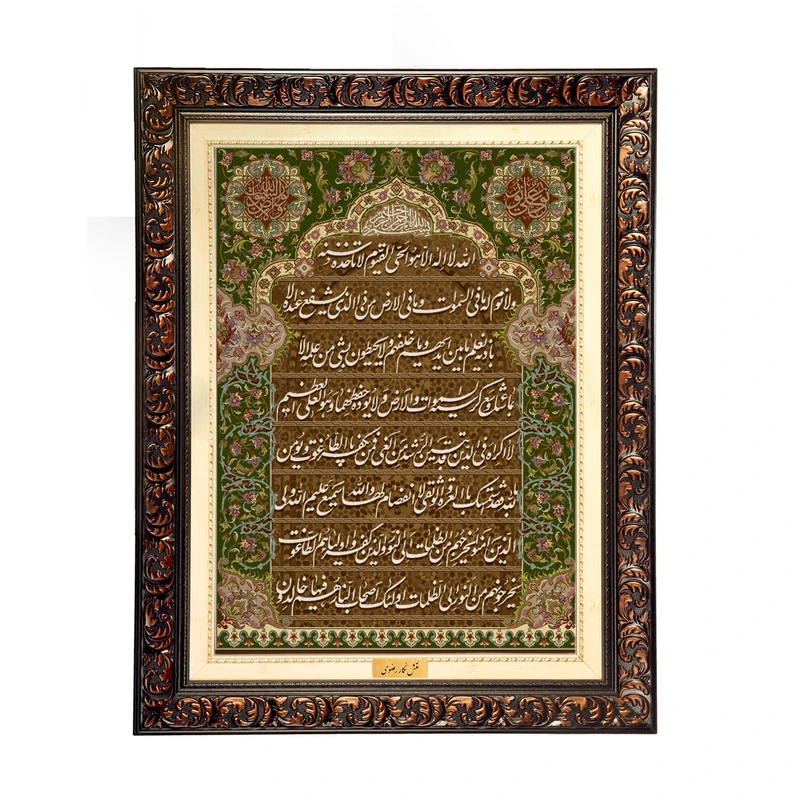 بسم الله الرحمن الرحیم
الله لا اله الا هو الحی القیوم لا تاخذه سنة
ولا نوم له ما فی السموات وما فی الارض من ذا الذی یشفع عنده الا
باذنه یعلم ما بین ایدیهم وما خلفهم ولا یحیطون بشئ من علمه الا
بما شاء وسع کرسیه السموات والارض ولا یوده حفظهما وهو العلی العظیم
لا اکراه فی الدین قد تبین الرشد من الغی فمن یکفر بالطاغوت ویومن
بالله فقد استمسک بالعروة الوثقی لا انفصام لها والله سمیع علیم الله ولی
الذین امنوا یخرجهم من الظلمات الی النور والذین کفروا اولیاوهم الطاغوت
یخرجونهم من النور الی الظلمات اولئک اصحاب النار هم فیها خالدون
نقش نگار رضوی